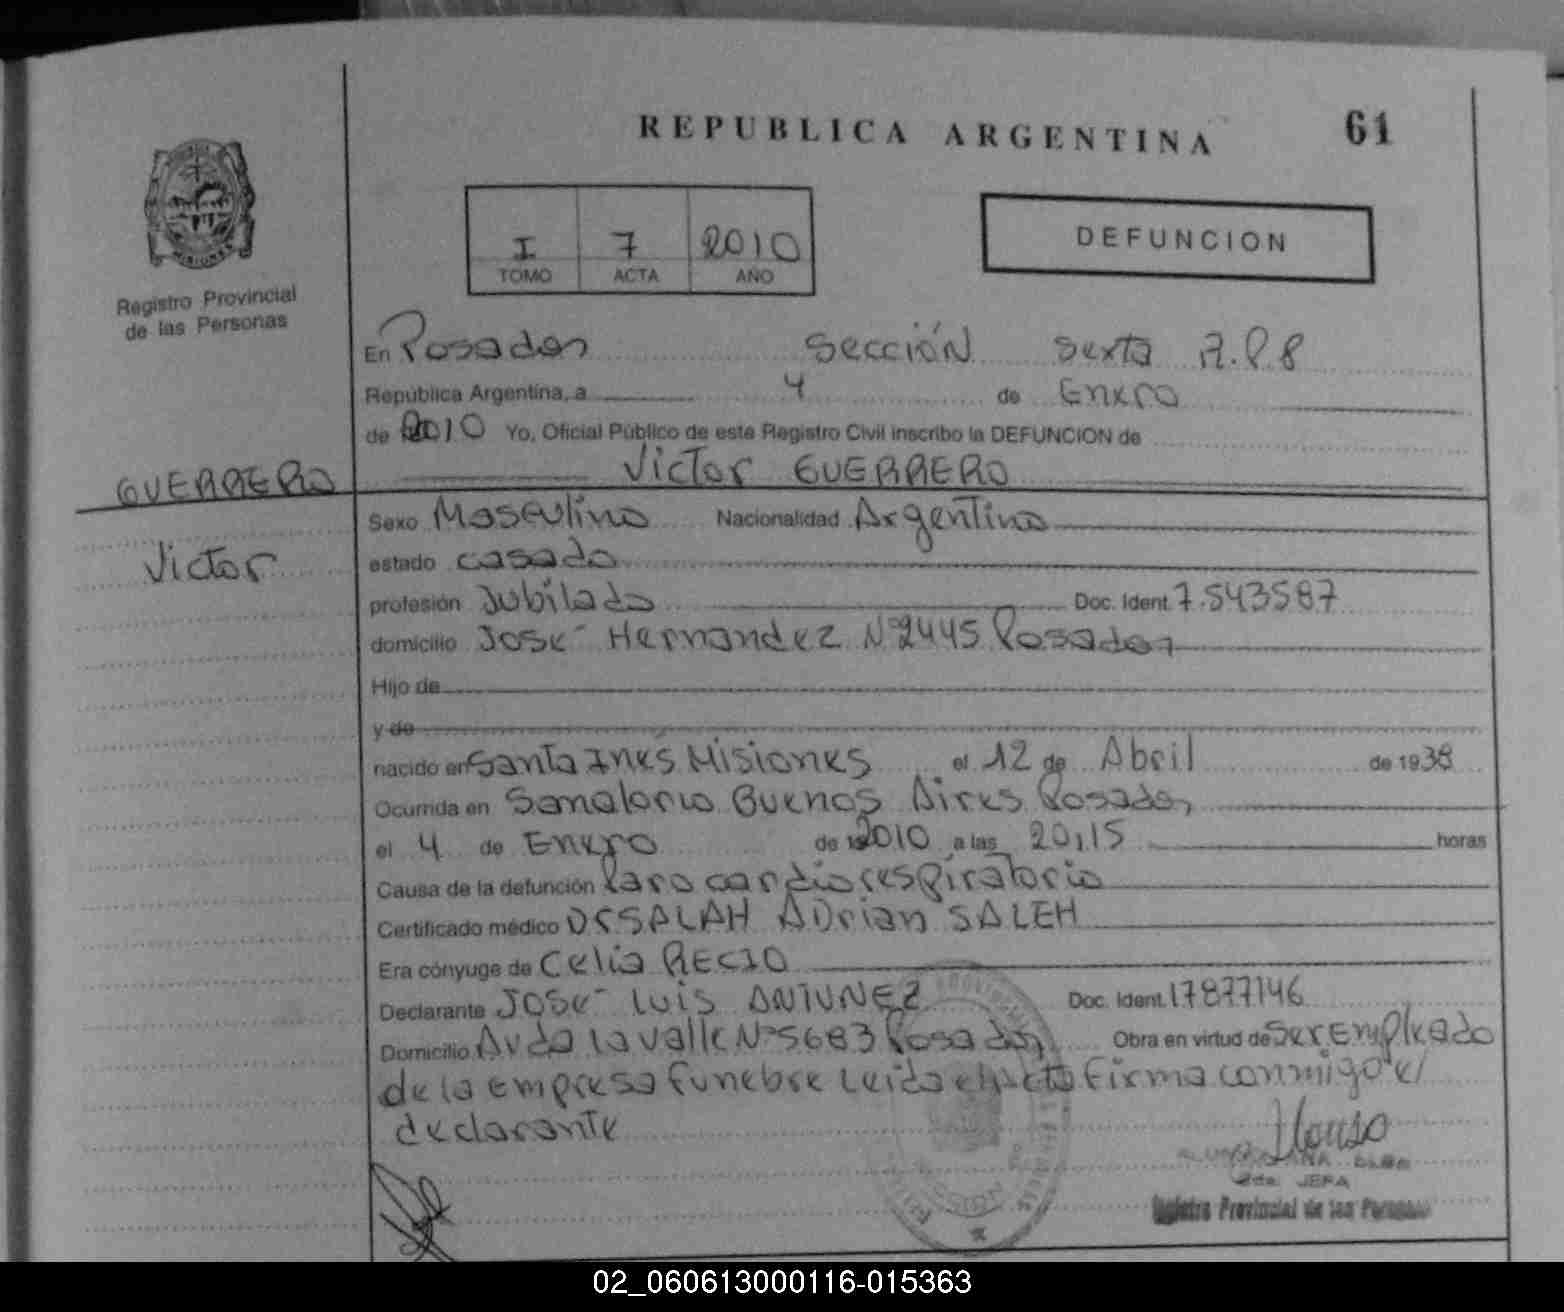 REPUBLICA ARGENTINA
61
MISIONES
Registro Provincial
de las Personas
I 7 2010
TOMO ACTA AÑO
DEFUNCION
En Posadas Sección Sexta R.P.8
República Argentina, a 4 de Enero
de 2010 Yo, Oficial Público de este Registro Civil inscribo la DEFUNCION de
Victor GUERRERO
GUERRERO
Victor
Sexo Masculino Nacionalidad Argentino
estado casado
profesión Jubilado Doc. Ident. 7.543587
domicilio José Hernandez Nº2445 Posadas
Hijo de
y de
nacido en Santa Inés Misiones el 12 de Abril de 1938
Ocurrida en Sanatorio Buenos Aires Posadas,
el 4 de Enero de 2010 a las 20,15 horas
Causa de la defunción Paro cardiorespiratorio
Certificado médico DR SALAH ADrian SALEH
Era cónyuge de Celia RECIO
Declarante José Luis ANTUNEZ Doc. Ident. 17877146
Domicilio Avda la valle Nº5683 Posadas, Obra en virtud de Ser Empleado
de la Empresa Funebre Leida el Acta Firma conmigo el
declarante
JEFA
Registro Provincial de las Personas
02_060613000116-015363